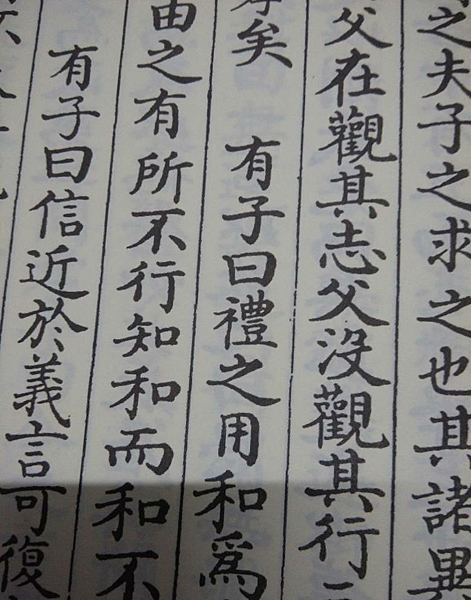 之夫子之求之也其諸異
父在觀其志父沒觀其行
矣　有子曰禮之用和爲
由之有所不行知和而和不
有子曰信近於義言可復